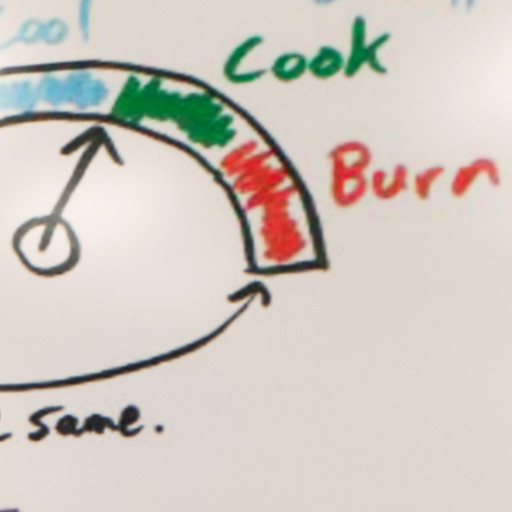 Cool
Cook
Burn
same.